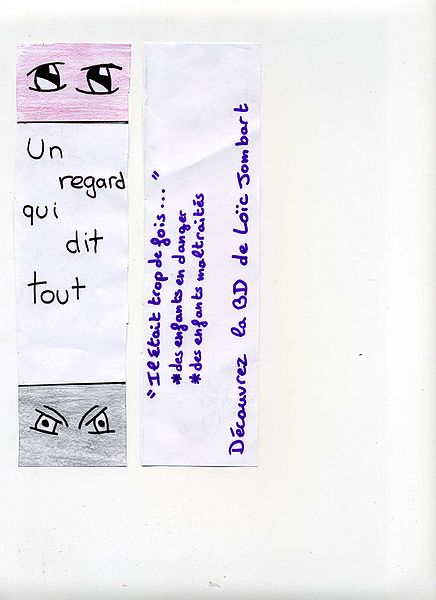 Un
regard
qui
dit
tout
"Il Etait trop de fois..."
*des enfants en danger
*des enfants maltraités
Découvrez la BD de Loïc Jombart